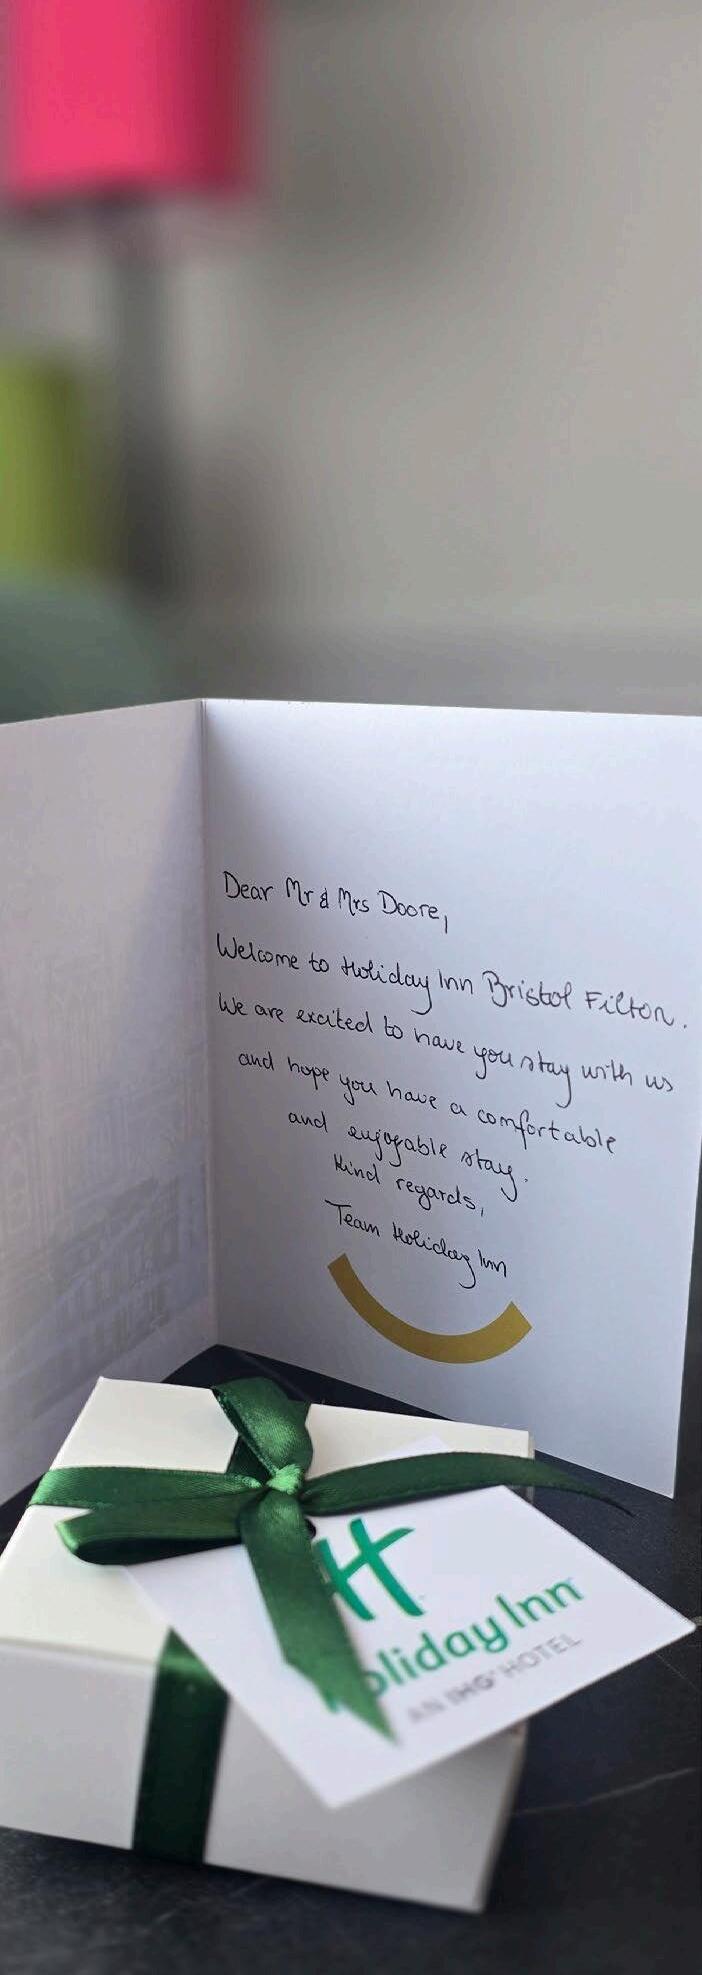 Dear Mr & Mrs Doore,
Welcome to Holiday Inn Bristol Filton.
We are excited to have you stay with us
and hope you have a comfortable
and enjoyable stay.
Kind regards,
Team Holiday Inn
H
Holiday Inn
AN IHG® HOTEL